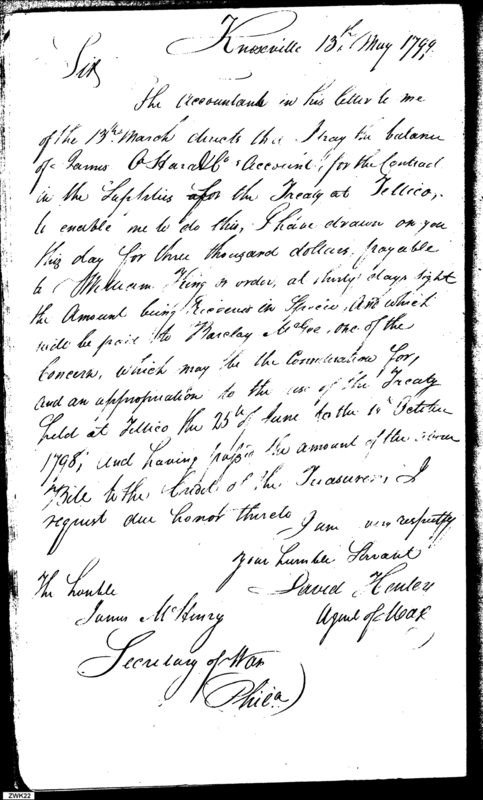 Knoxville 13th May 1799.
Sir,
The Accountant in his letter to me
of the 13th March directs that I pay the balance
of James O Hara & Co Account for the Contract
in the Supplies for the Treaty at Tellico,
to enable me to do this, I have drawn on you
this day for three thousand dollars, payable
to William King or order, at thirty days sight
the Amount being received in Specie, and which
will be paid to Barclay McGee, one of the
Concern, which may be the consideration for,
and an appropriation to the use of the Treaty
held at Tellico the 25th of June to the 1st October
1798, and having passed the amount of the above
Bill to the Credit of the Treasurer, I
request due honor thereto
I am very respectfy
your humble Servant
David Henley
Agent of War
The honble
James McHenry
Secretary of War
Phila)
ZWK22